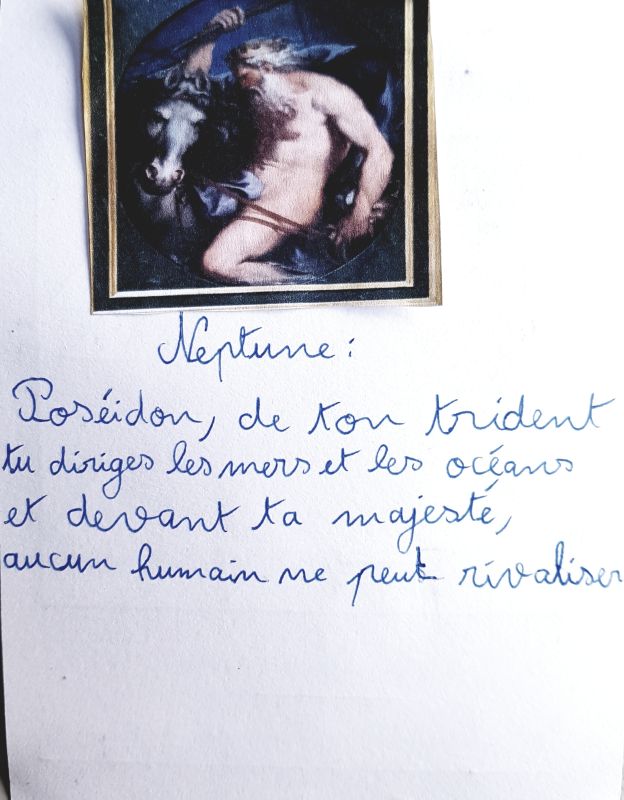 Neptune :
Poséidon, de ton trident
tu diriges les mers et les océans
et devant ta majesté,
aucun humain ne peut rivaliser